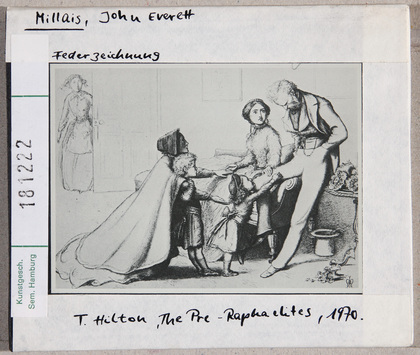 Millais, John Everett
Federzeichnung
181222
Kunstgesch.
Sem. Hamburg
T. Hilton, The Pre-Raphaelites, 1970.